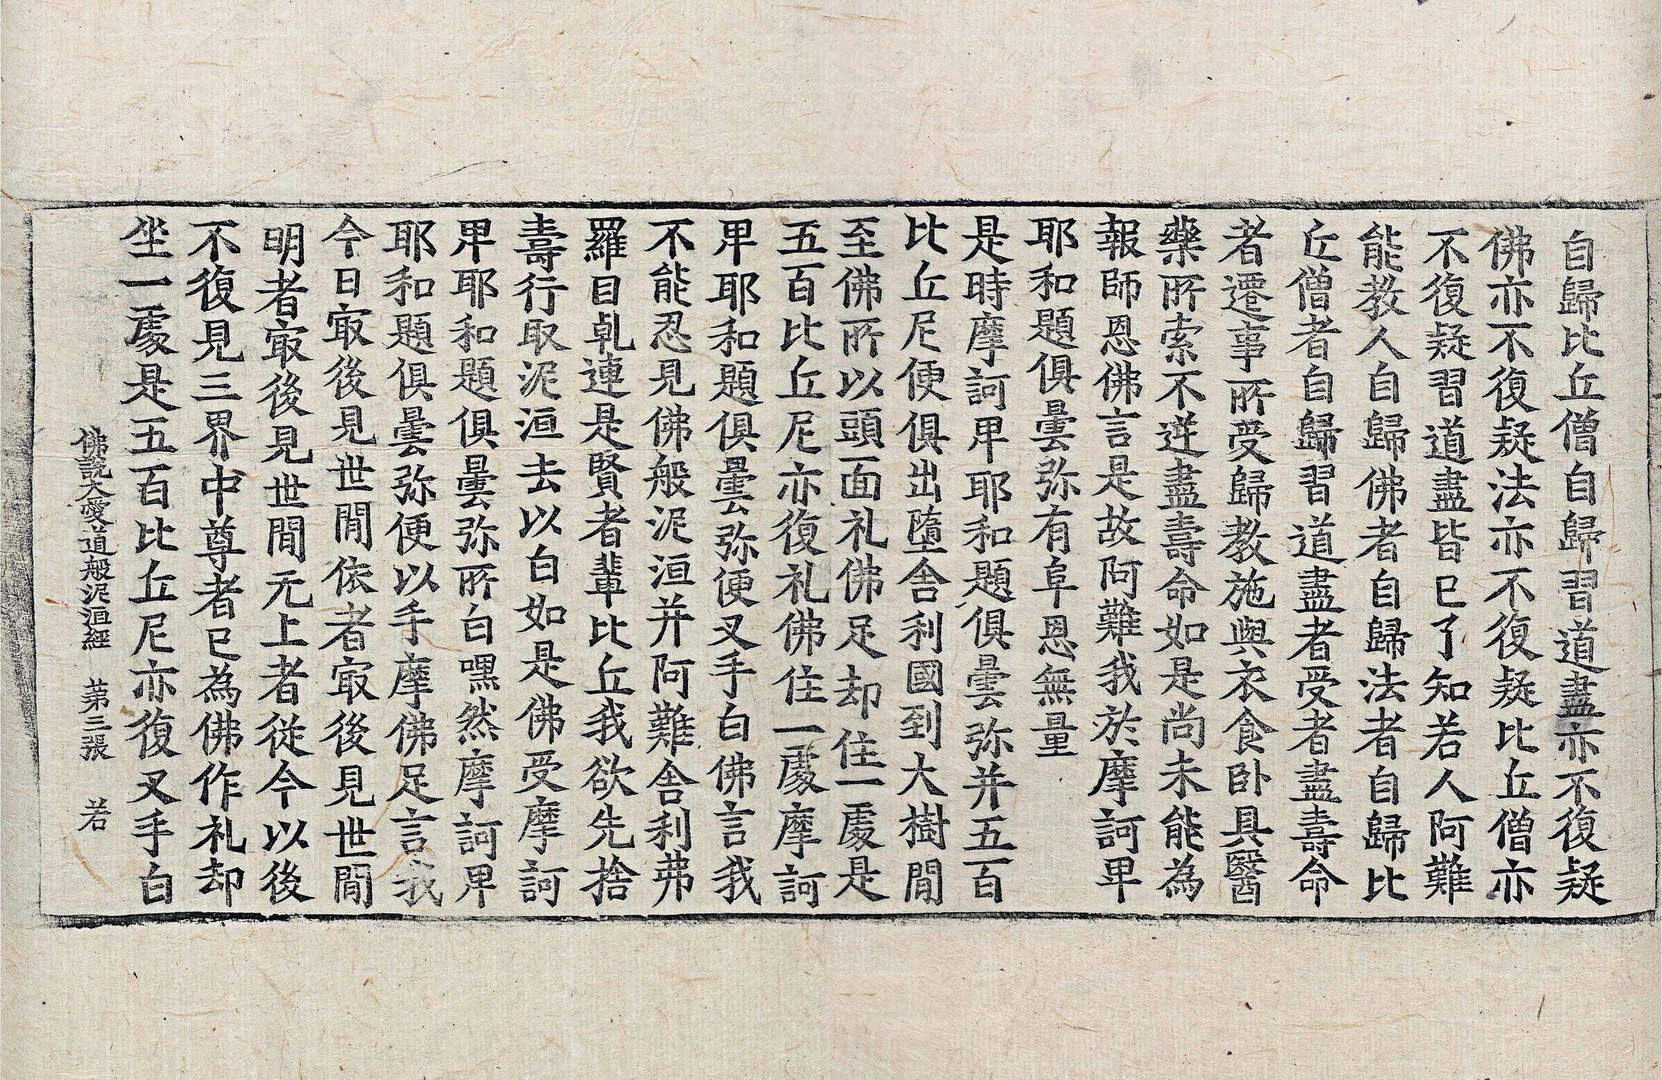 自歸比丘僧自歸習道盡亦不復疑
佛亦不復疑法亦不復疑比丘僧亦
不復疑習道盡皆已了知若人阿難
能教人自歸佛者自歸法者自歸比
丘僧者自歸習道盡者受者盡壽命
者遷事所受歸教施與衣食卧具醫
藥所索不逆盡壽命如是尚未能為
報師恩佛言是故阿難我於摩訶卑
耶和題俱曇弥有阜恩無量
是時摩訶卑耶和題俱曇弥并五百
比丘尼便俱出墮舍利國到大樹閒
至佛所以頭面礼佛足却住一處是
五百比丘尼亦復礼佛住一處摩訶
卑耶和題俱曇弥便叉手白佛言我
不能忍見佛般泥洹并阿難舍利弗
羅目乹連是賢者輩比丘我欲先捨
壽行取泥洹去以白如是佛受摩訶
卑耶和題俱曇弥所白嘿然摩訶卑
耶和題俱曇弥便以手摩佛足言我
今日㝡後見世閒依者㝡後見世閒
明者㝡後見世閒无上者従今以後
不復見三界中尊者已為佛作礼却
坐一處是五百比丘尼亦復叉手白
佛說大愛道般泥洹經 苐三張 若